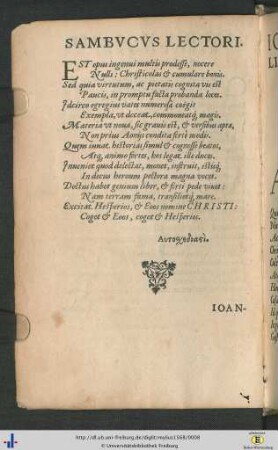 SAMBVCVS LECTORI.
EST opus ingenui multis prodesse, nocere
Nulli: Christicolas & cumulare bonis.
Sed quia virtutum, ac pietatis cognita vis est
Paucis, in promptu facta probanda loco.
Idcirco egregius vates numerosa cuiq́ue
Exempla, vt doceat, commoueatq́;, magis.
Materia vt noua, sic grauis est, & versibus apta,
Non prius Aonijs condita forte modis.
Quem iuuat, historias simul & cognosse beatos,
Atq, animo fortes, hos legat, ille ducu.
Inueniet quod delectat, monet, instruit,
In decus heroum pectora magna vocat.
Doctus habet genium liber, & feret pede viuat:
Nam terram fama, transilietq́; mare.
Excitat Hesperios, & Eoos nomine CHRISTI:
Cogot & Eous, cogot & Hesperius.
Αυτοσχεδιαςὶ.
IOAN-
http://dl.ub.uni-freiburg.de/diglit/mylius1568/0008
© Universitätsbibliothek Freiburg